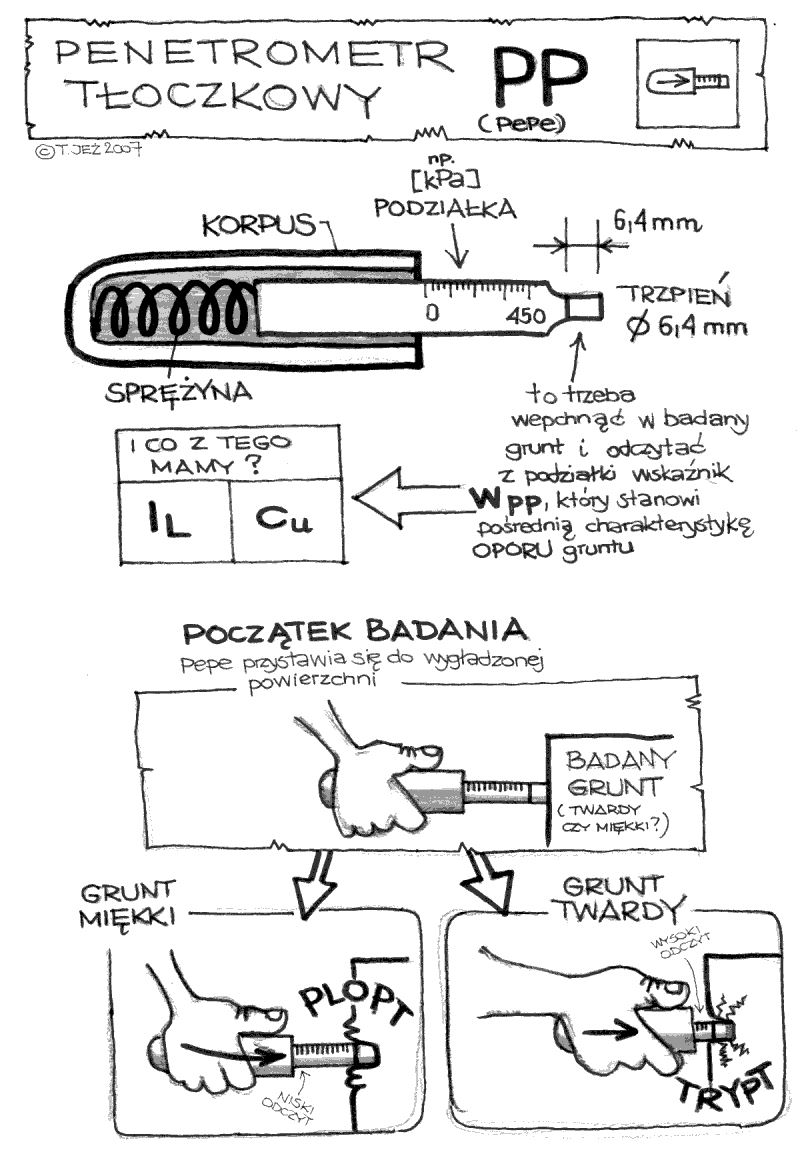 PENETROMETR
TŁOCZKOWY
PP
(PePe)
© T. JEŻ 2007
np.
[kPa]
PODZIAŁKA
KORPUS
6,4 mm
0
450
TRZPIEŃ
Ø 6,4 mm
SPRĘŻYNA
to trzeba
wepchnąć w badany
grunt i odczytać
z podziałki wskaźnik
WPP, który stanowi
pośrednią charakterystykę
OPORU gruntu
I CO Z TEGO
MAMY?
IL
Cu
POCZĄTEK BADANIA
pepe przystawia się do wygładzonej
powierzchni
BADANY
GRUNT
(TWARDY
CZY MIĘKKI?)
GRUNT
MIĘKKI
PLOPT
NISKI
ODCZYT
GRUNT
TWARDY
WYSOKI
ODCZYT
TRYPT